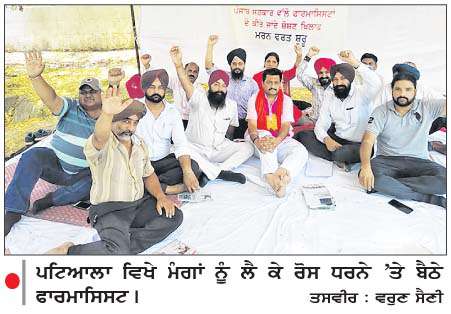 ਪੰਜਾਬ ਸਰਕਾਰ ਵੱਲੋਂ ਫਾਰਮਾਸਿਸਟਾਂ
ਦੇ ਕੀਤੇ ਜਾਂਦੇ ਸ਼ੋਸ਼ਣ ਖਿਲਾਫ
ਮਰਨ ਵਰਤ ਸ਼ੁਰੂ
ਪਟਿਆਲਾ ਵਿਖੇ ਮੰਗਾਂ ਨੂੰ ਲੈ ਕੇ ਰੋਸ ਧਰਨੇ 'ਤੇ ਬੈਠੇ
ਫਾਰਮਾਸਿਸਟ। ਤਸਵੀਰ : ਵਰੁਣ ਸੈਣੀ